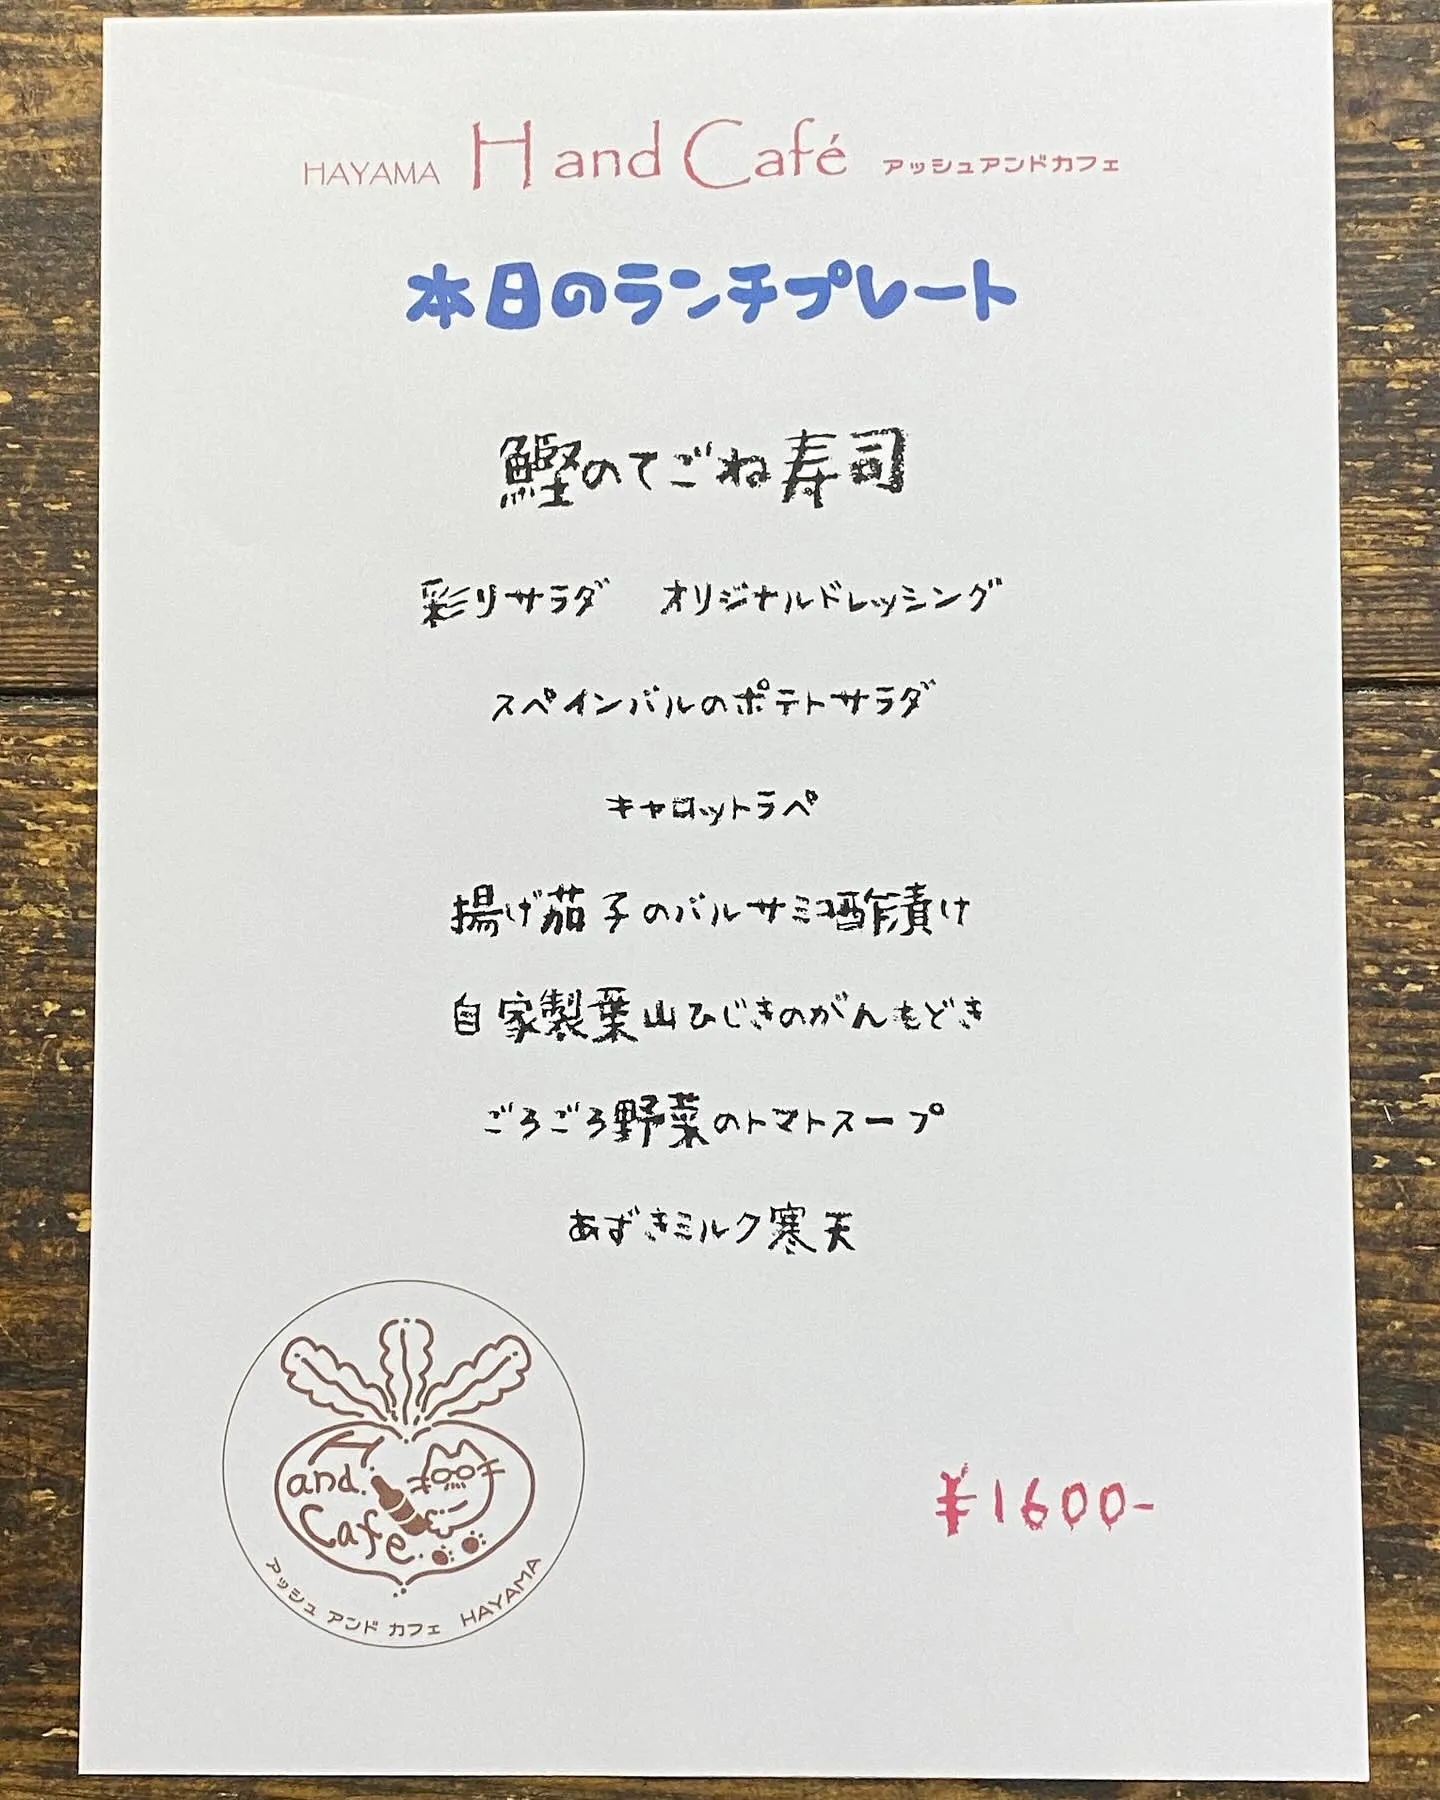 HAYAMA H and Café アッシュアンドカフェ
本日のランチプレート
鰹のてごね寿司
彩りサラダ オリジナルドレッシング
スペインバルのポテトサラダ
キャロットラペ
揚げ茄子のバルサミコ酢漬け
自家製葉山ひじきのがんもどき
ごろごろ野菜のトマトスープ
あずきミルク寒天
H
and.
Cafe.
アッシュ アンド カフェ HAYAMA
¥1600-